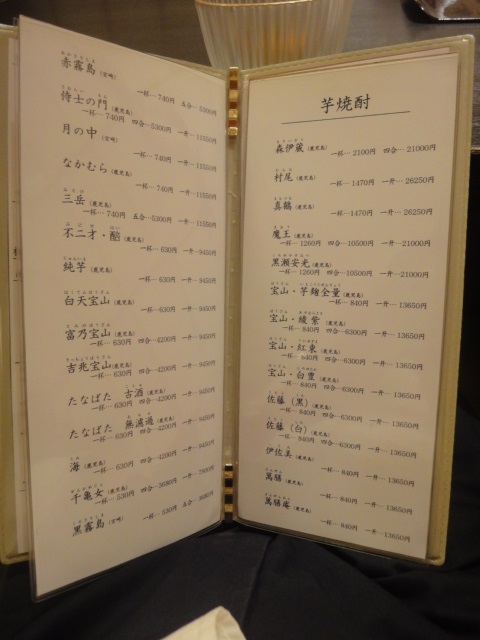 芋焼酎
森伊蔵 (鹿児島)
一杯… 2100円 四合… 21000円
村尾 (鹿児島)
一杯…1470円 一升… 26250円
真鶴 (鹿児島)
一杯…1470円 一升… 26250円
魔王 (鹿児島)
一杯…1260円 四合…10500円 一升…21000円
黒瀬安光 (鹿児島)
一杯…1260円 四合…10500円 一升…21000円
宝山・芋麹全量 (鹿児島)
一杯… 840円 一升… 13650円
宝山・綾紫 (鹿児島)
一杯… 840円 四合…6300円 一升… 13650円
宝山・紅東 (鹿児島)
一杯… 840円 四合…6300円 一升… 13650円
宝山・白豊 (鹿児島)
一杯… 840円 四合…6300円 一升… 13650円
佐藤 (黒) (鹿児島)
一杯… 840円 四合…6300円 一升… 13650円
佐藤 (白) (鹿児島)
一杯… 840円 四合…6300円 一升… 13650円
伊佐美 (鹿児島)
一杯… 840円 一升… 13650円
萬膳 (鹿児島)
一杯… 840円 一升… 13650円
萬膳庵 (鹿児島)
一杯… 840円 一升… 13650円
赤霧島 (宮崎)
一杯… 740円 五合… 5300円
侍士の門 (鹿児島)
一杯… 740円 四合…5300円 一升… 11550円
月の中 (宮崎)
一杯… 740円 一升… 11550円
なかむら (鹿児島)
一杯… 740円 一升… 11550円
三岳 (鹿児島)
一杯… 740円 五合…5300円 一升… 11550円
不二才・醅 (鹿児島)
一杯… 630円 一升… 9450円
純芋 (鹿児島)
一杯… 630円 一升… 9450円
白天宝山 (鹿児島)
一杯… 630円 一升… 9450円
富乃宝山 (鹿児島)
一杯… 630円 四合…4200円 一升… 9450円
吉兆宝山 (鹿児島)
一杯… 630円 四合…4200円 一升… 9450円
たなばた 古酒 (鹿児島)
一杯… 630円 四合…4200円 一升… 9450円
たなばた 無濾過 (鹿児島)
一杯… 630円 四合…4200円 一升… 9450円
海 (鹿児島)
一杯… 630円 四合…4200円 一升… 9450円
千亀女 (鹿児島)
一杯… 530円 四合…3680円 一升… 7900円
黒霧島 (宮崎)
一杯… 530円 五合… 3680円